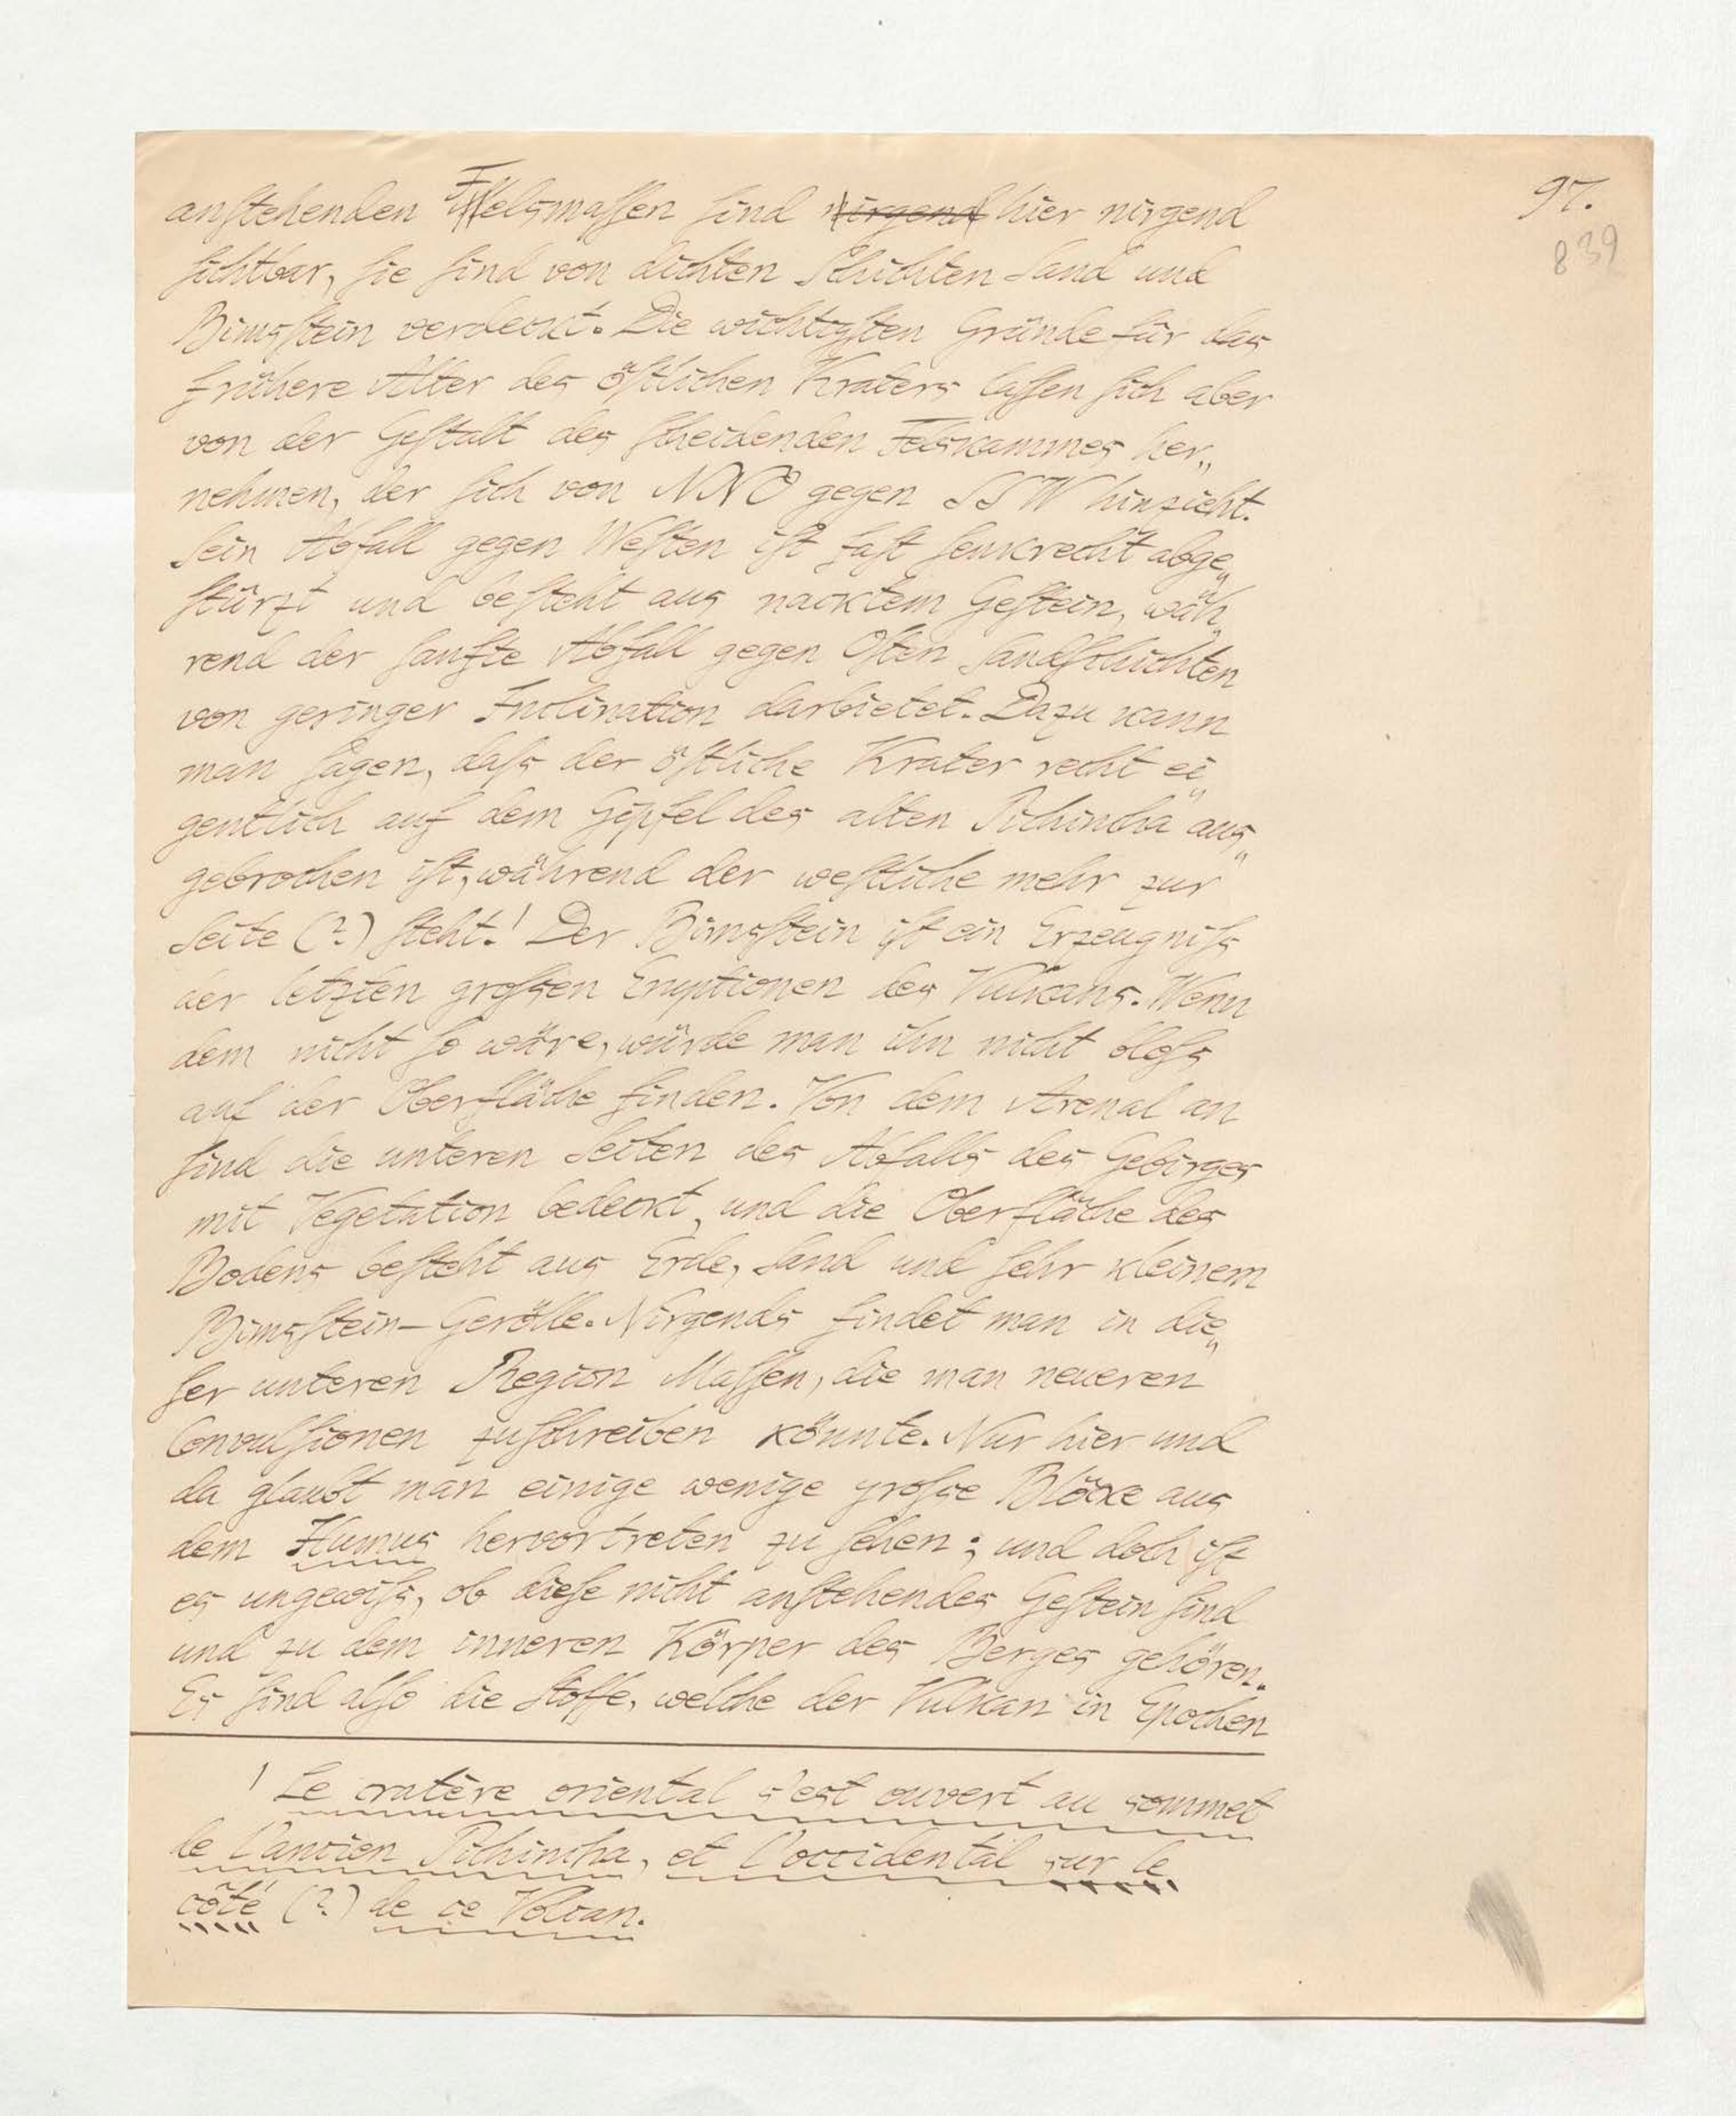 97.
839
anstehenden Felsmassen sind nirgend hier nirgend
sichtbar, sie sind von dichten Schichten Sand und
Bimsstein verdeckt. Die wichtigsten Gründe für das
frühere Alter des östlichen Kraters lassen sich aber
von der Gestalt des scheidenden Felskammes her„
nehmen, der sich von NNO gegen SSW hinzieht.
Sein Abfall gegen Westen ist fast senkrecht abge„
stürzt und besteht aus nacktem Gestein, wäh„
rend der sanfte Abfall gegen Osten Sandschichten
von geringer Inclination darbietet. Dazu kann
man sagen, dass der östliche Krater recht ei„
gentlich auf dem Gipfel des alten Pichincha aus„
gebrochen ist, während der westliche mehr zur
Seite (?) steht.¹ Der Bimsstein ist ein Erzeugniss
der letzten grossen Eruptionen des Vulkans. Wenn
dem nicht so wäre, würde man ihn nicht bloss
auf der Oberfläche finden. Von dem Arenal an
sind die unteren Seiten des Abfalls des Gebirges
mit Vegetation bedeckt, und die Oberfläche des
Bodens besteht aus Erde, Sand und sehr kleinem
Bimsstein-Gerölle. Nirgends findet man in die„
ser unteren Region Massen, die man neueren
Convulsionen zuschreiben könnte. Nur hier und
da glaubt man einige wenige grosse Blöcke aus
dem Humus hervortreten zu sehen; und doch ist
es ungewiss, ob diese nicht anstehendes Gestein sind
und zu dem inneren Körper des Berges gehören.
Es sind also die Stoffe, welche der Vulkan in Epochen
¹ Le cratère oriental s'est ouvert au sommet
de l'ancien Pichincha, et l'occidental sur le
côté (?) de ce Volcan.